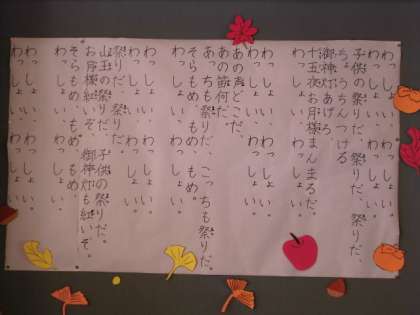 わっしょい、わっしょい。
わっしょい、わっしょい。
祭りだ、祭りだ
子供の祭りだ、祭りだ
ちょうちんつける
御神灯あげろ、
十五夜お月様まんまるだ。
わっしょい、わっしょい。
わっしょい、わっしょい。
あの声どこだ、
あの笛何だ
あっちも祭りだ、こっちも祭りだ。
そらもめ、もめ、もめ。
わっしょい、わっしょい。
わっしょい、わっしょい。
祭りだ、祭りだ。
山王の祭りだ、子供の祭りだ。
お月様紅いぞ、御神灯も紅いぞ。
そらもめ、もめ、もめ。
わっしょい、わっしょい。
わっしょい、わっしょい。